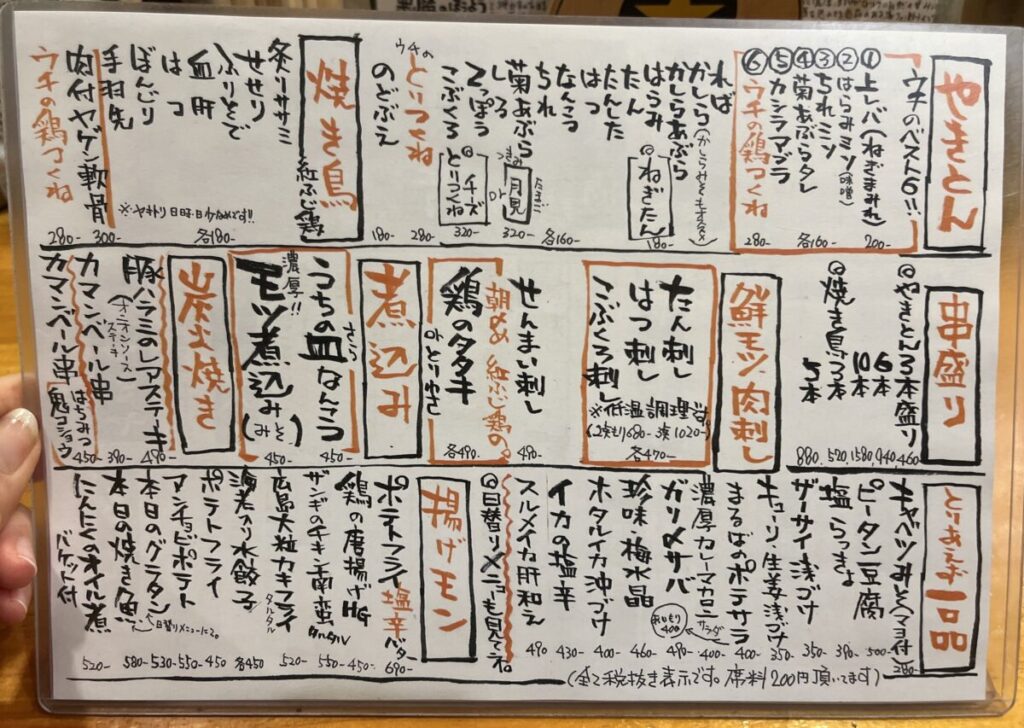 やきとん
ウチのベスト6!!
①上レバ(ねぎまみれ)
200-
②はらみミソ(味噌)
③ちれミソ
④菊あぶらタレ
⑤カシラマヅラ
各160-
⑥ウチの鶏つくね
280-
れば
かしら(かしらみそもオススメ)
かしらあぶら
はらみ
たん
◎ねぎたん
180-
たんした
はつ
なんこつ
ちれ
各160-
菊あぶら
しろ
てっぽう
こぶくろ
ウチのとりつくね
たまご
月見
つきみ
or
320-
◎チーズとりつくね
320-
280-
のどぶえ
180-
焼き鳥
紅ふじ鶏
炙りササミ
せせり
ふりそで
血肝
はつ
ぼんじり
手羽先
各180-
※ヤキトリ日時・日少なめです!!
肉付ヤゲン軟骨
300-
ウチの鶏つくね
280-
串盛り
◎やきとん3本盛り
460-
6本
940-
10本
1580,
◎焼き鳥3本
520,
5本
880.
鮮モツ、肉刺し
たん刺し
はつ刺し
こぶくろ刺し
※低温調理済
(2種もり680- 3種1020-)
各470-
せんまい刺し
490-
朝〆 紅ふじ鶏の。
鶏のタタキ
orとりわさ
各490.
煮込み
うちの皿なんこつ
さら
450-
濃厚!!
モツ煮込み(みそ)
450-
炭火焼き
豚ハラミのレアステーキ
(オニオンソースステーキ)
490-
カマンベール串
390-
カマンベール串[はちみつ 鬼コショウ
450-
とりあえず一品
キャベツみそ(マヨ付)
280-
ピータン豆腐
500-
塩らっきょ
390-
ザーサイ浅づけ
350-
キューリ生姜浅づけ
350-
まるばのポテサラ
400-
濃厚カレーマカロニサラダ
400-
ガリ〆サバ
490-
珍味 梅水晶
460-
ホタルイカ沖づけ
400-
イカの塩辛
430-
スルメイカ肝和え
490
◎日替りメニューも見てネ。
揚げモン
ポテトフライ塩辛バター
690-
鶏の唐揚げHG
450-
ザンギのチキン南蛮タルタル
550-
広島大粒カキフライ タルタル
520-
海老入り水餃子
各450
ポテトフライ
450
アンチョビポテト
550-
本日のグラタン
530-
本日の焼き魚
←日替りメニューにる。
580-
にんにくのオイル煮
バケット付
520-
(全て税抜き表示です。席料200円頂いてます)